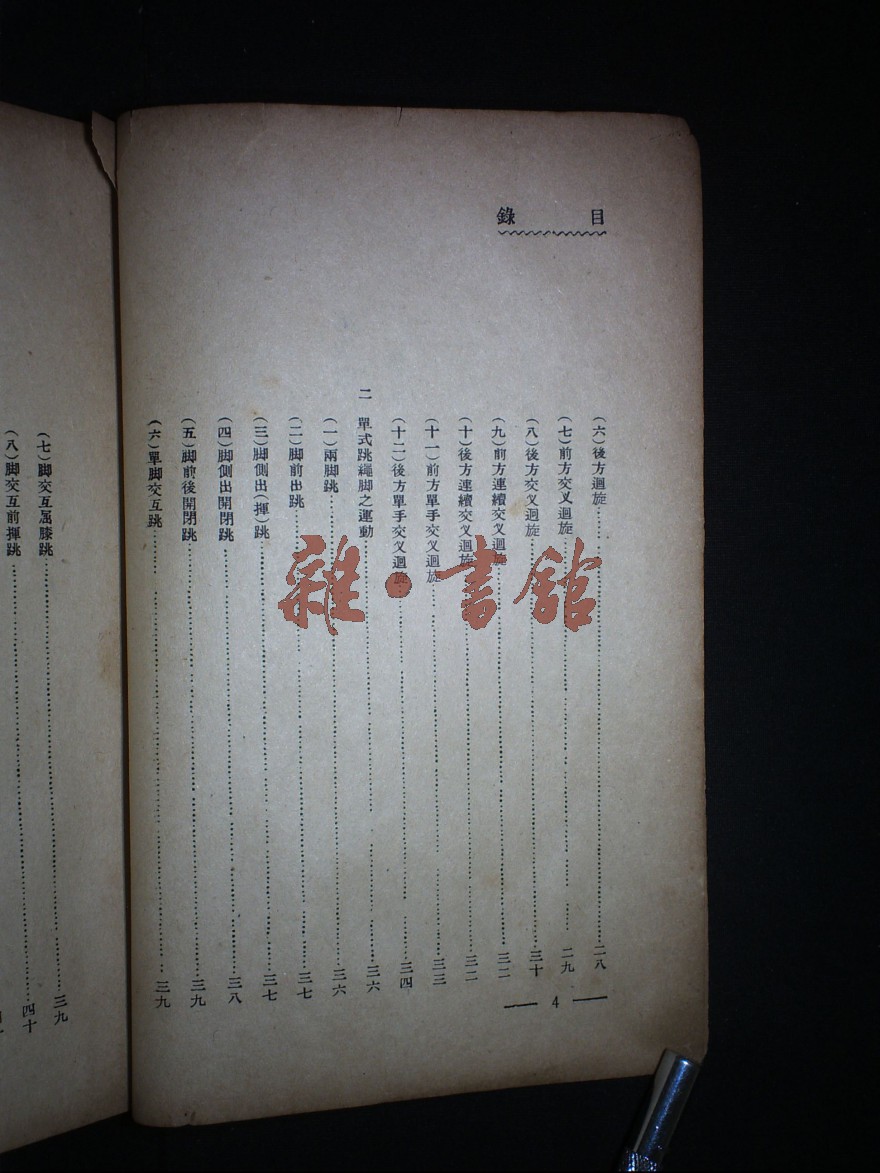 目錄
（六）後方迴旋……二八
（七）前方交叉迴旋……二九
（八）後方交叉迴旋……三十
（九）前方連續交叉迴旋……三二
（十）後方連續交叉迴旋……三二
（十一）前方單手交叉迴旋……三三
（十二）後方單手交叉迴旋……三四
二　單式跳繩脚之運動……三六
（一）兩脚跳……三六
（二）脚前出跳……三七
（三）脚側出（揮）跳……三七
（四）脚側出開閉跳……三八
（五）脚前後開閉跳……三九
（六）單脚交互跳……三九
— 4 —
（七）脚交互屈膝跳……三九
（八）脚交互前揮跳……四十
雜·書館